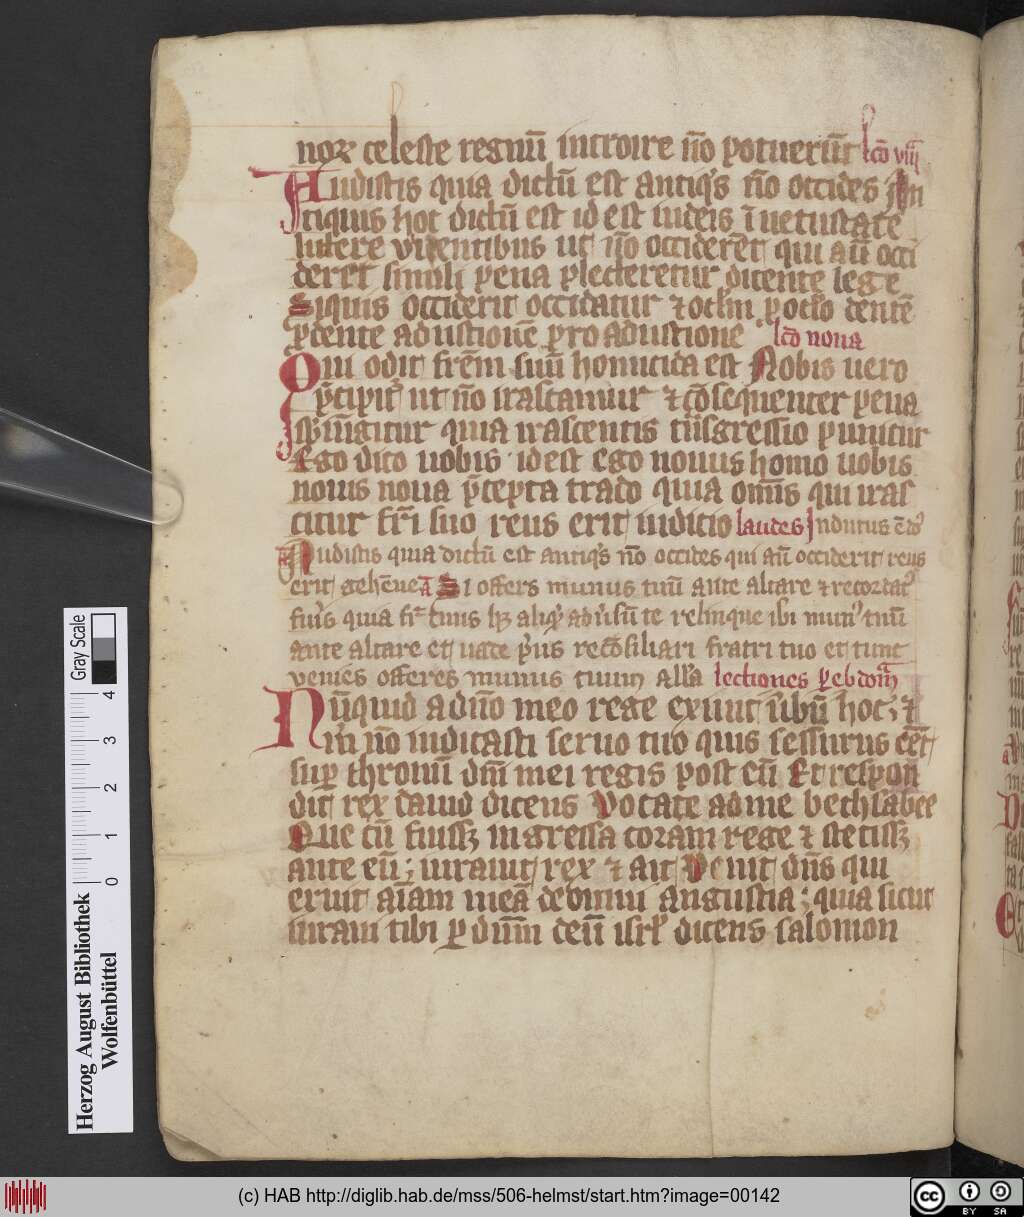 noꝝ celeste regnū introire nō potuerūt lcō viiiᵃ
Audistis quia dictū est antiqˢ nō occides An
tiquis hoc dictū est id est iudeis ī uetustate
littere viuentibus ut nō occiderēt qui aū occi
deret simili pena plecteretur dicente lege
Siquis occiderit occidatur ⁊ oclm p oclo dentē
p dente adustionē pro adustione lcō nona
Qui odit frēm suū homicida est Nobis uero
p̄cipit ut nō irascamur ⁊ cōsequenter pena
quia irascentis tūsgressio punitur
Ego dico uobis id est ego nouus homo uobis
nouis noua p̄cepta trado quia omīs qui iras
citur fr̄i suo reus erit iudicio laudes Indutus ē dō
Audistis quia dictū est antiqˢ nō occides qui aū occiderit reus
erit gehēne a Si offers munus tuū ante altare ⁊ recordatꝰ
fuīs quia fr̄ tuus hꝫ aliqͥ adūsū te relinque ibi munꝰ tuū
ante altare et uade p̄us recōsiliari fratri tuo et tunc
veniēs offeres munus tuum all'a lectiones p ebdomᵃ
Nūquid a dn̄o meo rege exiuit ūbū hoc; ⁊
m̄ nō indicasti seruo tuo quis sessurus eēt
sup thronū dn̄i mei regis post eū Et respon
dit rex dauid dicens Vocate ad me bethsabee
Que cū fuissꝫ ingressa coram rege ⁊ stetissꝫ
ante eū; iurauit rex ⁊ ait Viuit dn̄s qui
eruit aīam meā de omni angustia; quia sicut
iuraui tibi p dn̄m deū isrl' dicens salomon
Gray Scale
4
3
2
1
0
Herzog August Bibliothek
Wolfenbüttel
(c) HAB http://diglib.hab.de/mss/506-helmst/start.htm?image=00142
cc BY SA